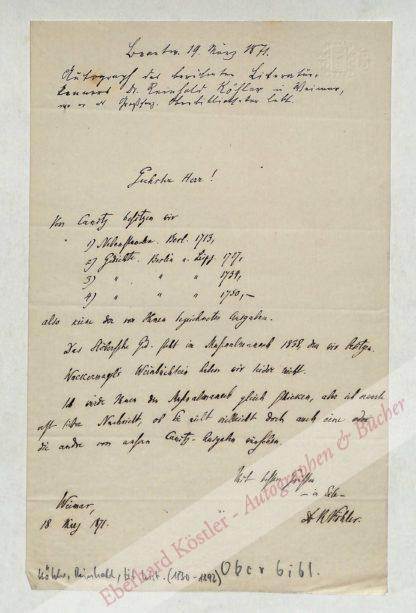 Beantw. 19 März 1871.
Autograph des berühmten Literatur-
kenners Dr. Reinhold Köhler in Weimar,
wo er als Großhzg. Oberbibliothekar lebt.
Geehrter Herr!
Von Canitz besitzen wir
1) Nebenstunden. Berl. 1713,
2) Gedichte. Berlin u. Lpz. 1727,
3) " " " 1734,
4) " " " 1750,—
also keine der von Ihnen bezeichneten Ausgaben.
Das Stöbersche Ged. steht im Musenalmanach 1838, den wir besitzen.
Wackernagels Weinbüchlein haben wir leider nicht.
Ich würde Ihnen den Musenalmanach gleich schicken, aber ich wünsche
erst Ihre Nachricht, ob Sie nicht vielleicht doch auch eine oder
die andre von unsern Canitz-Ausgaben einsehen.
Mit besten Grüßen
in Eile
Weimar,
18 März 1871.
Dr R. Köhler.
Köhler, Reinhold, (1830-1892) Oberbibl.
Eberhard Köstler - Autographen & Bücher